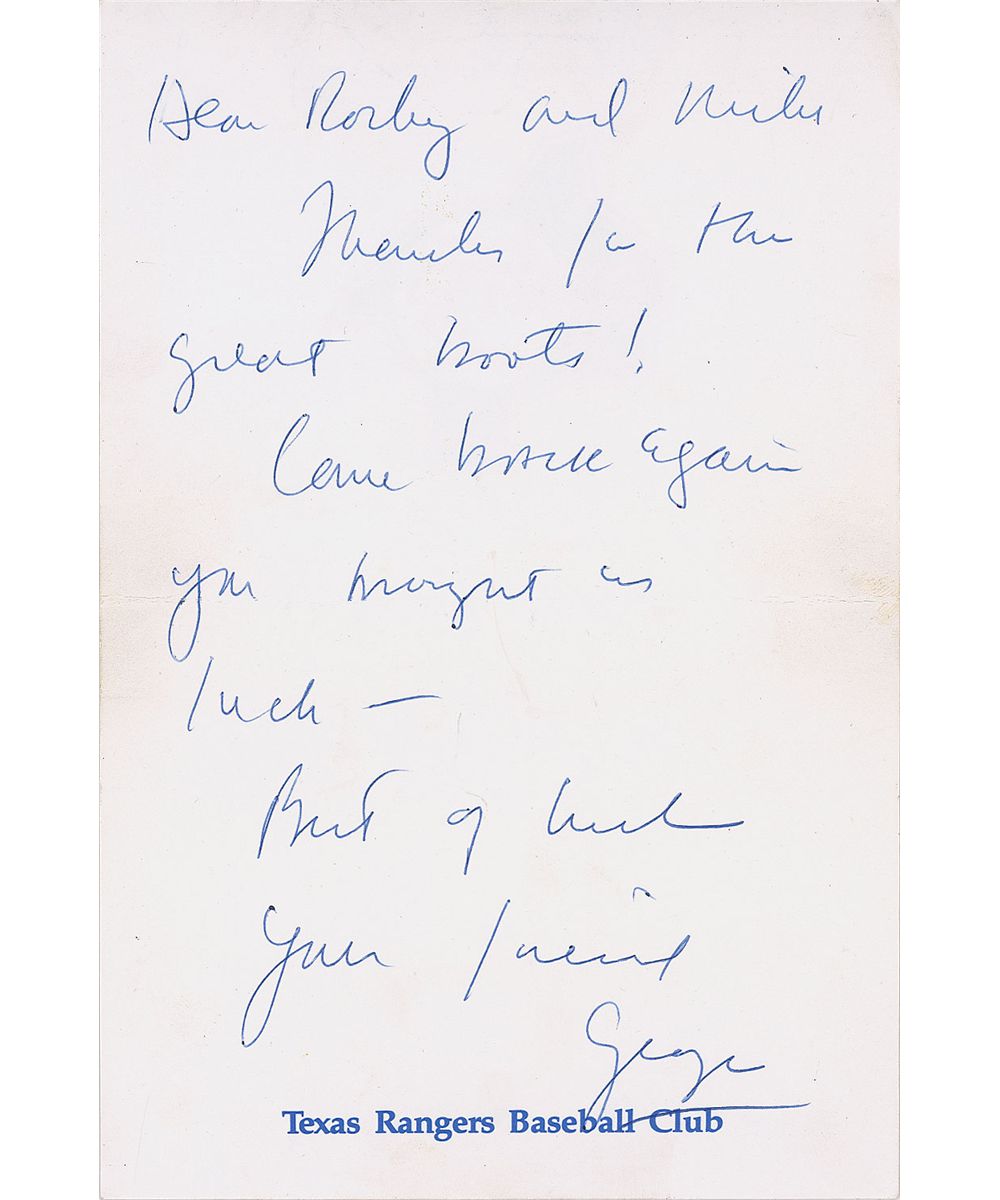 Dear Rocky and Mike
Thanks for the
great boots!
Come back again
you brought us
luck —
Best of luck
Your friend
George
Texas Rangers Baseball Club